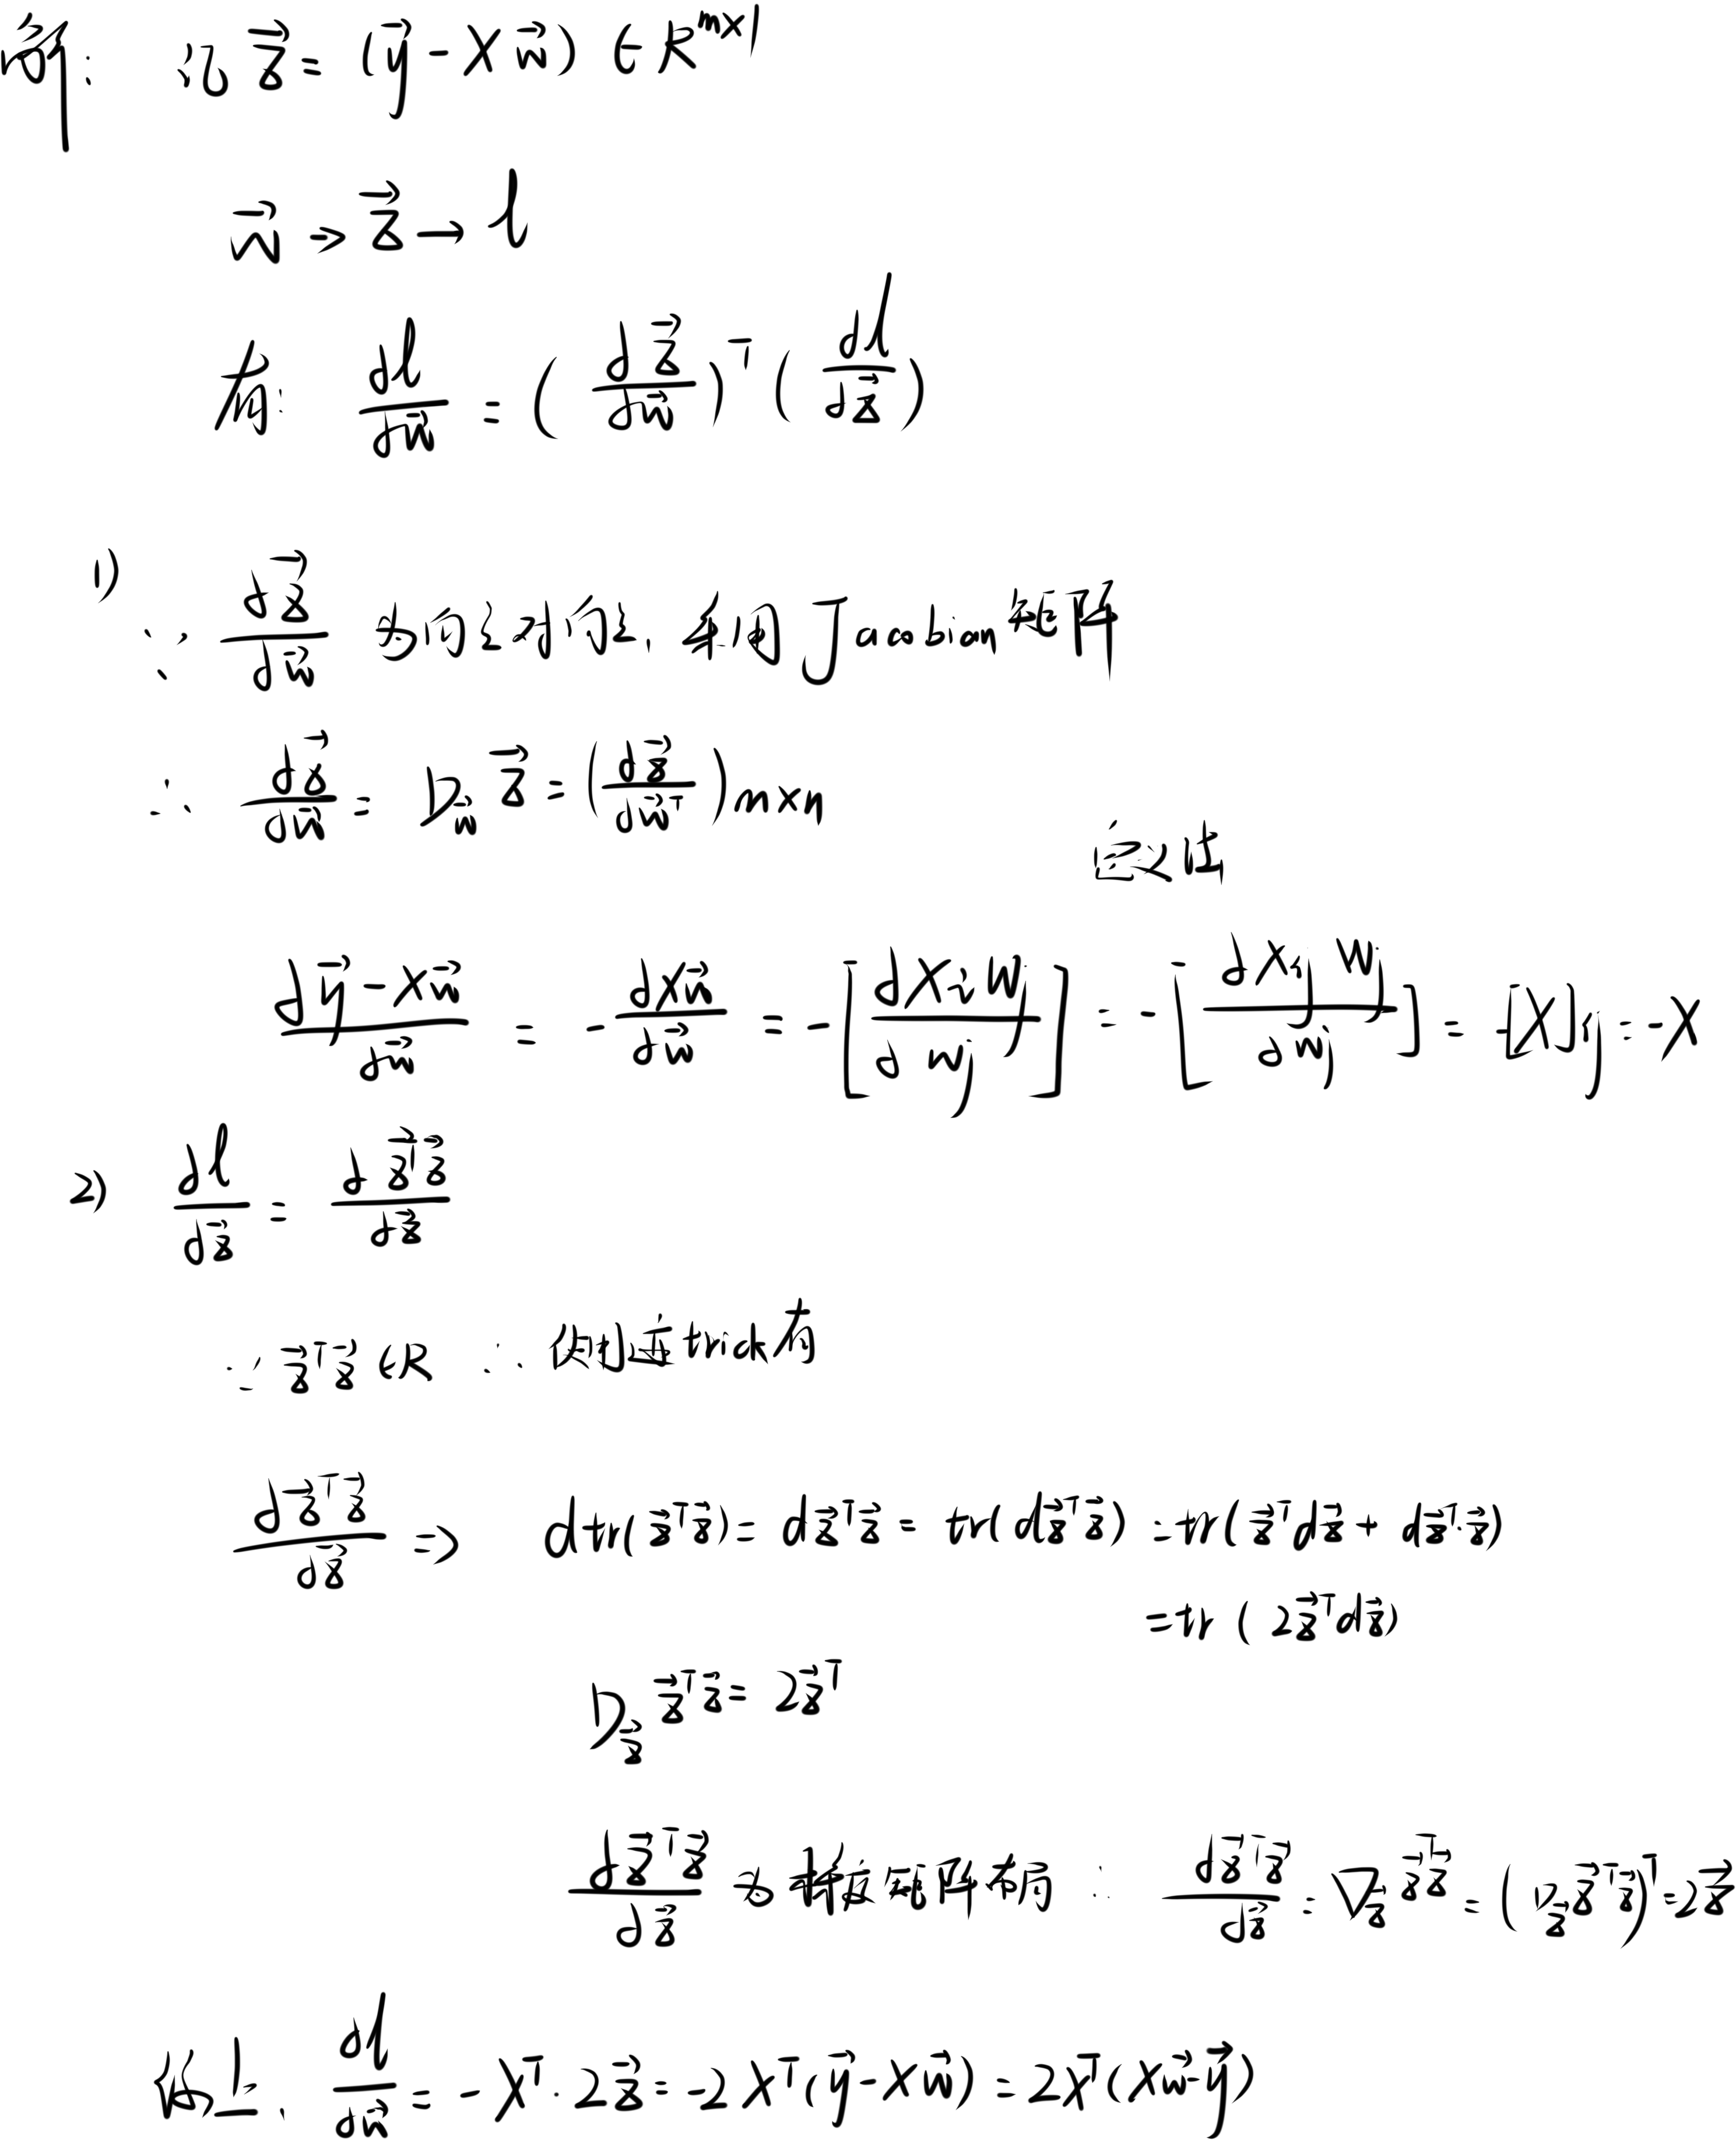 解: 记 z⃗ = (y⃗ - Xw⃗) ∈ R^{m×1}
w⃗ => z⃗ → l
有: dl/dw⃗ = (dz⃗/dw⃗)^T (dl/dz⃗)
1) ∵ dz⃗/dw⃗ 为向量对向量, 采用 Jacobian 矩阵
∴ dz⃗/dw⃗ = D_w⃗ z⃗ = (dz⃗/dw⃗^T) m×n
定义出
d y⃗-Xw⃗ / dw⃗ = - dXw⃗/dw⃗ = -[dX_i w⃗/dw_j] = -[dX_ij w_j/dw_j] = -[X]_ij = -X
2) dl/dz⃗ = dz⃗^T z⃗/dz⃗
∵ z⃗^T z⃗ ∈ R ∴ 微分 trick 有
dz⃗^T z⃗/dz⃗ => d tr(z⃗^T z⃗) = dz⃗^T z⃗ = tr(dz⃗^T z⃗) = tr(z⃗^T dz⃗ + dz⃗^T z⃗)
= tr(2z⃗^T dz⃗)
D_z⃗ z⃗^T z⃗ = 2z⃗^T
dz⃗^T z⃗/dz⃗ 为梯度矩阵形式: dz⃗^T z⃗/dz⃗ = ∇_z⃗ z⃗^T z⃗ = (D_z⃗ z⃗^T z⃗)^T = 2z⃗
综上: dl/dw⃗ = -X^T · 2z⃗ = -2X^T(y⃗ - Xw⃗) = 2X^T(Xw⃗ - y⃗)